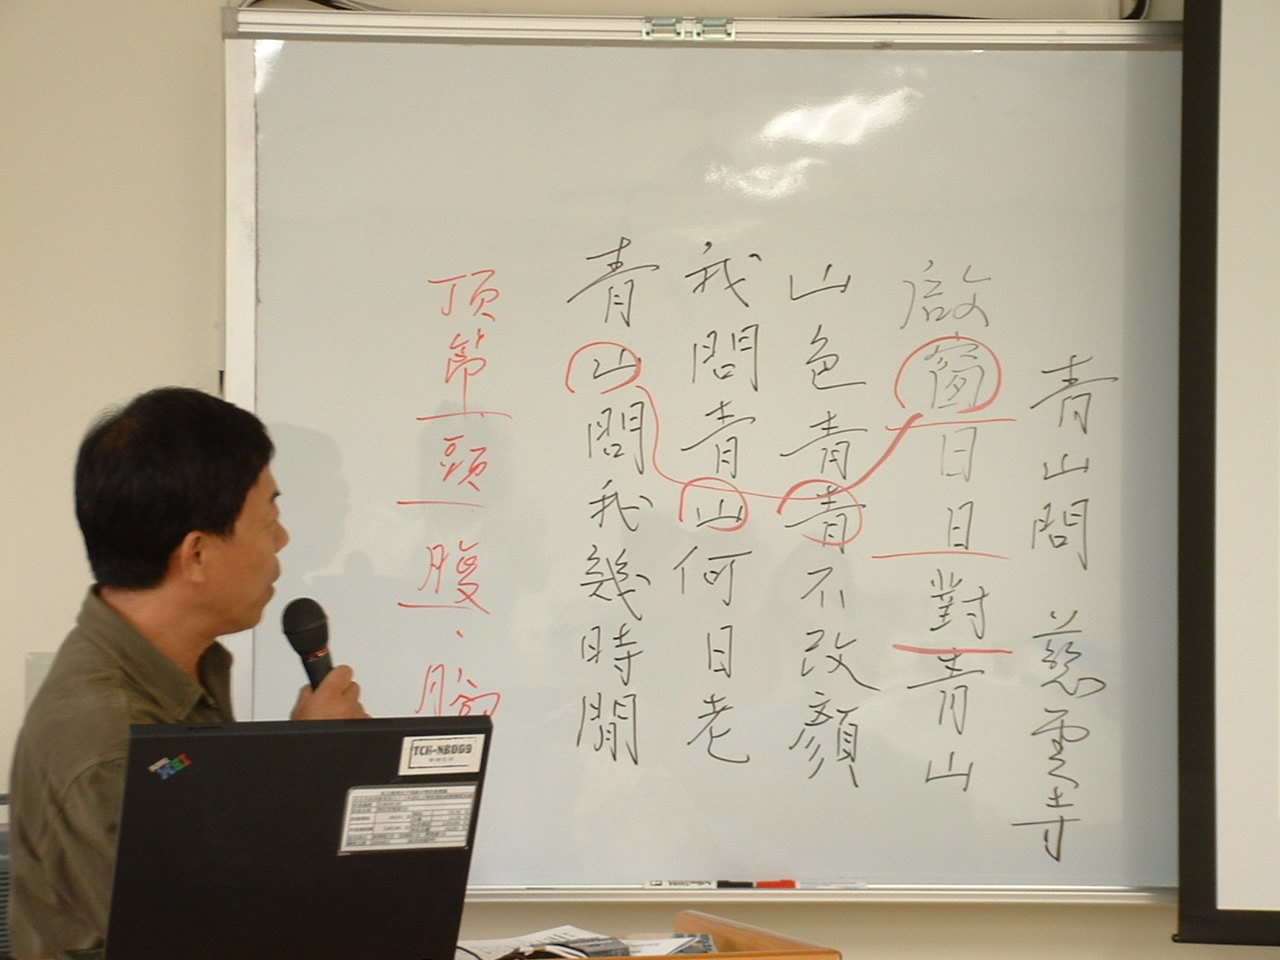 青山問 慈雲寺
啟窗日日對青山
山色青青不改顏
我問青山何日老
青山問我幾時閒
頂節頭腹腳
TCH-NB009
IBM